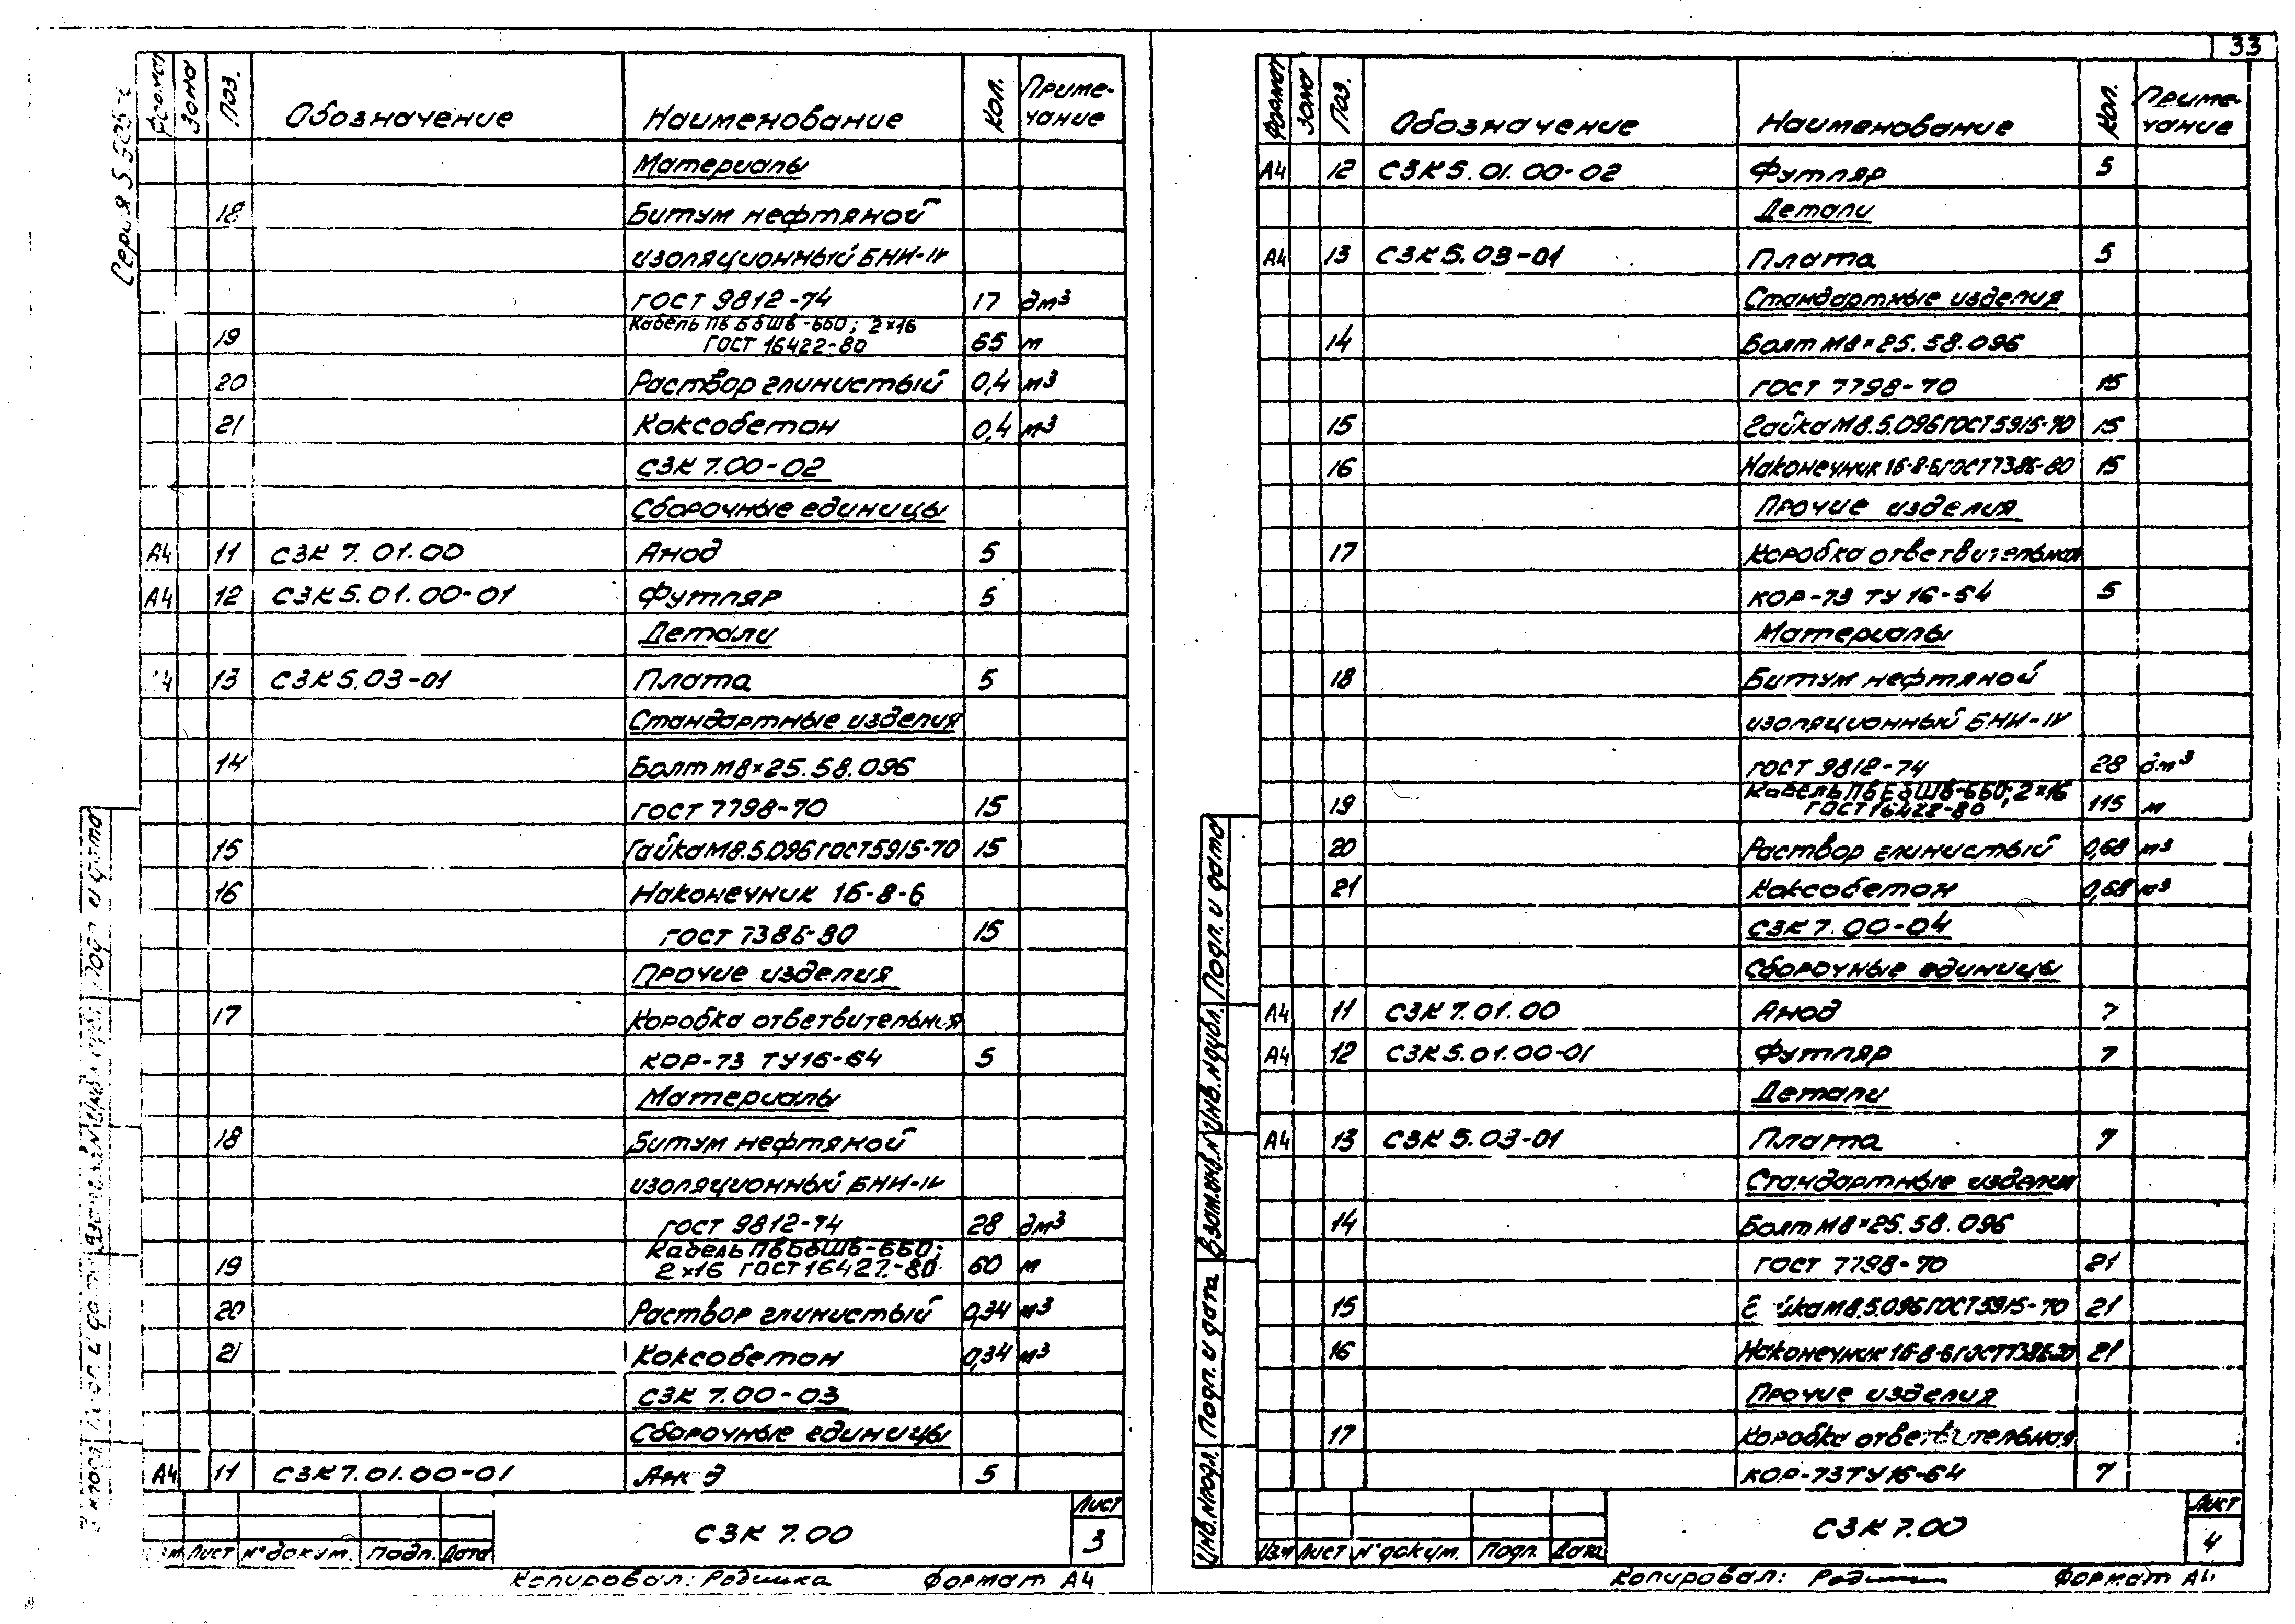 33
Серия 5.905-
Формат Зона Поз. Обозначение Наименование Кол. Приме-
чание
Материалы
18 Битум нефтяной
изоляционный БНИ-IV
ГОСТ 9812-74 17 дм³
19 Кабель ПвБбШв-660; 2×16
ГОСТ 16422-80 65 м
20 Раствор глинистый 0,4 м³
21 Коксобетон 0,4 м³
СЗК 7.00-02
Сборочные единицы
А4 11 СЗК 7.01.00 Анод 5
А4 12 СЗК 5.01.00-01 Футляр 5
Детали
А4 13 СЗК 5.03-01 Плата 5
Стандартные изделия
14 Болт М8×25.58.096
ГОСТ 7798-70 15
15 Гайка М8.5.096 ГОСТ 5915-70 15
16 Наконечник 16-8-6
ГОСТ 7386-80 15
Прочие изделия
17 Коробка ответвительная
КОР-73 ТУ16-64 5
Материалы
18 Битум нефтяной
изоляционный БНИ-IV
ГОСТ 9812-74 28 дм³
19 Кабель ПвБбШв-660;
2×16 ГОСТ 16422-80 60 м
20 Раствор глинистый 0,34 м³
21 Коксобетон 0,34 м³
СЗК 7.00-03
Сборочные единицы
А4 11 СЗК 7.01.00-01 Анод 5
Лист
СЗК 7.00
3
Изм Лист № докум. Подп. Дата
Копировал: Родишка Формат А4
Подп. и дата
Формат Зона Поз. Обозначение Наименование Кол. Приме-
чание
А4 12 СЗК 5.01.00-02 Футляр 5
Детали
А4 13 СЗК 5.03-01 Плата 5
Стандартные изделия
14 Болт М8×25.58.096
ГОСТ 7798-70 15
15 Гайка М8.5.096 ГОСТ 5915-70 15
16 Наконечник 16-8-6 ГОСТ 7386-80 15
Прочие изделия
17 Коробка ответвительная
КОР-73 ТУ 16-64 5
Материалы
18 Битум нефтяной
изоляционный БНИ-IV
ГОСТ 9812-74 28 дм³
19 Кабель ПвБбШв-660; 2×16
ГОСТ 16422-80 115 м
20 Раствор глинистый 0,68 м³
21 Коксобетон 0,68 м³
СЗК 7.00-04
Сборочные единицы
А4 11 СЗК 7.01.00 Анод 7
А4 12 СЗК 5.01.00-01 Футляр 7
Детали
А4 13 СЗК 5.03-01 Плата 7
Стандартные изделия
14 Болт М8×25.58.096
ГОСТ 7798-70 21
15 Гайка М8.5.096 ГОСТ 5915-70 21
16 Наконечник 16-8-6 ГОСТ 7386-80 21
Прочие изделия
17 Коробка ответвительная
КОР-73 ТУ16-64 7
Лист
СЗК 7.00
4
Изм Лист № докум. Подп. Дата
Копировал: Формат А4
Инв.№подл. Подп. и дата Взам.инв.№ Инв.№дубл. Подп. и дата